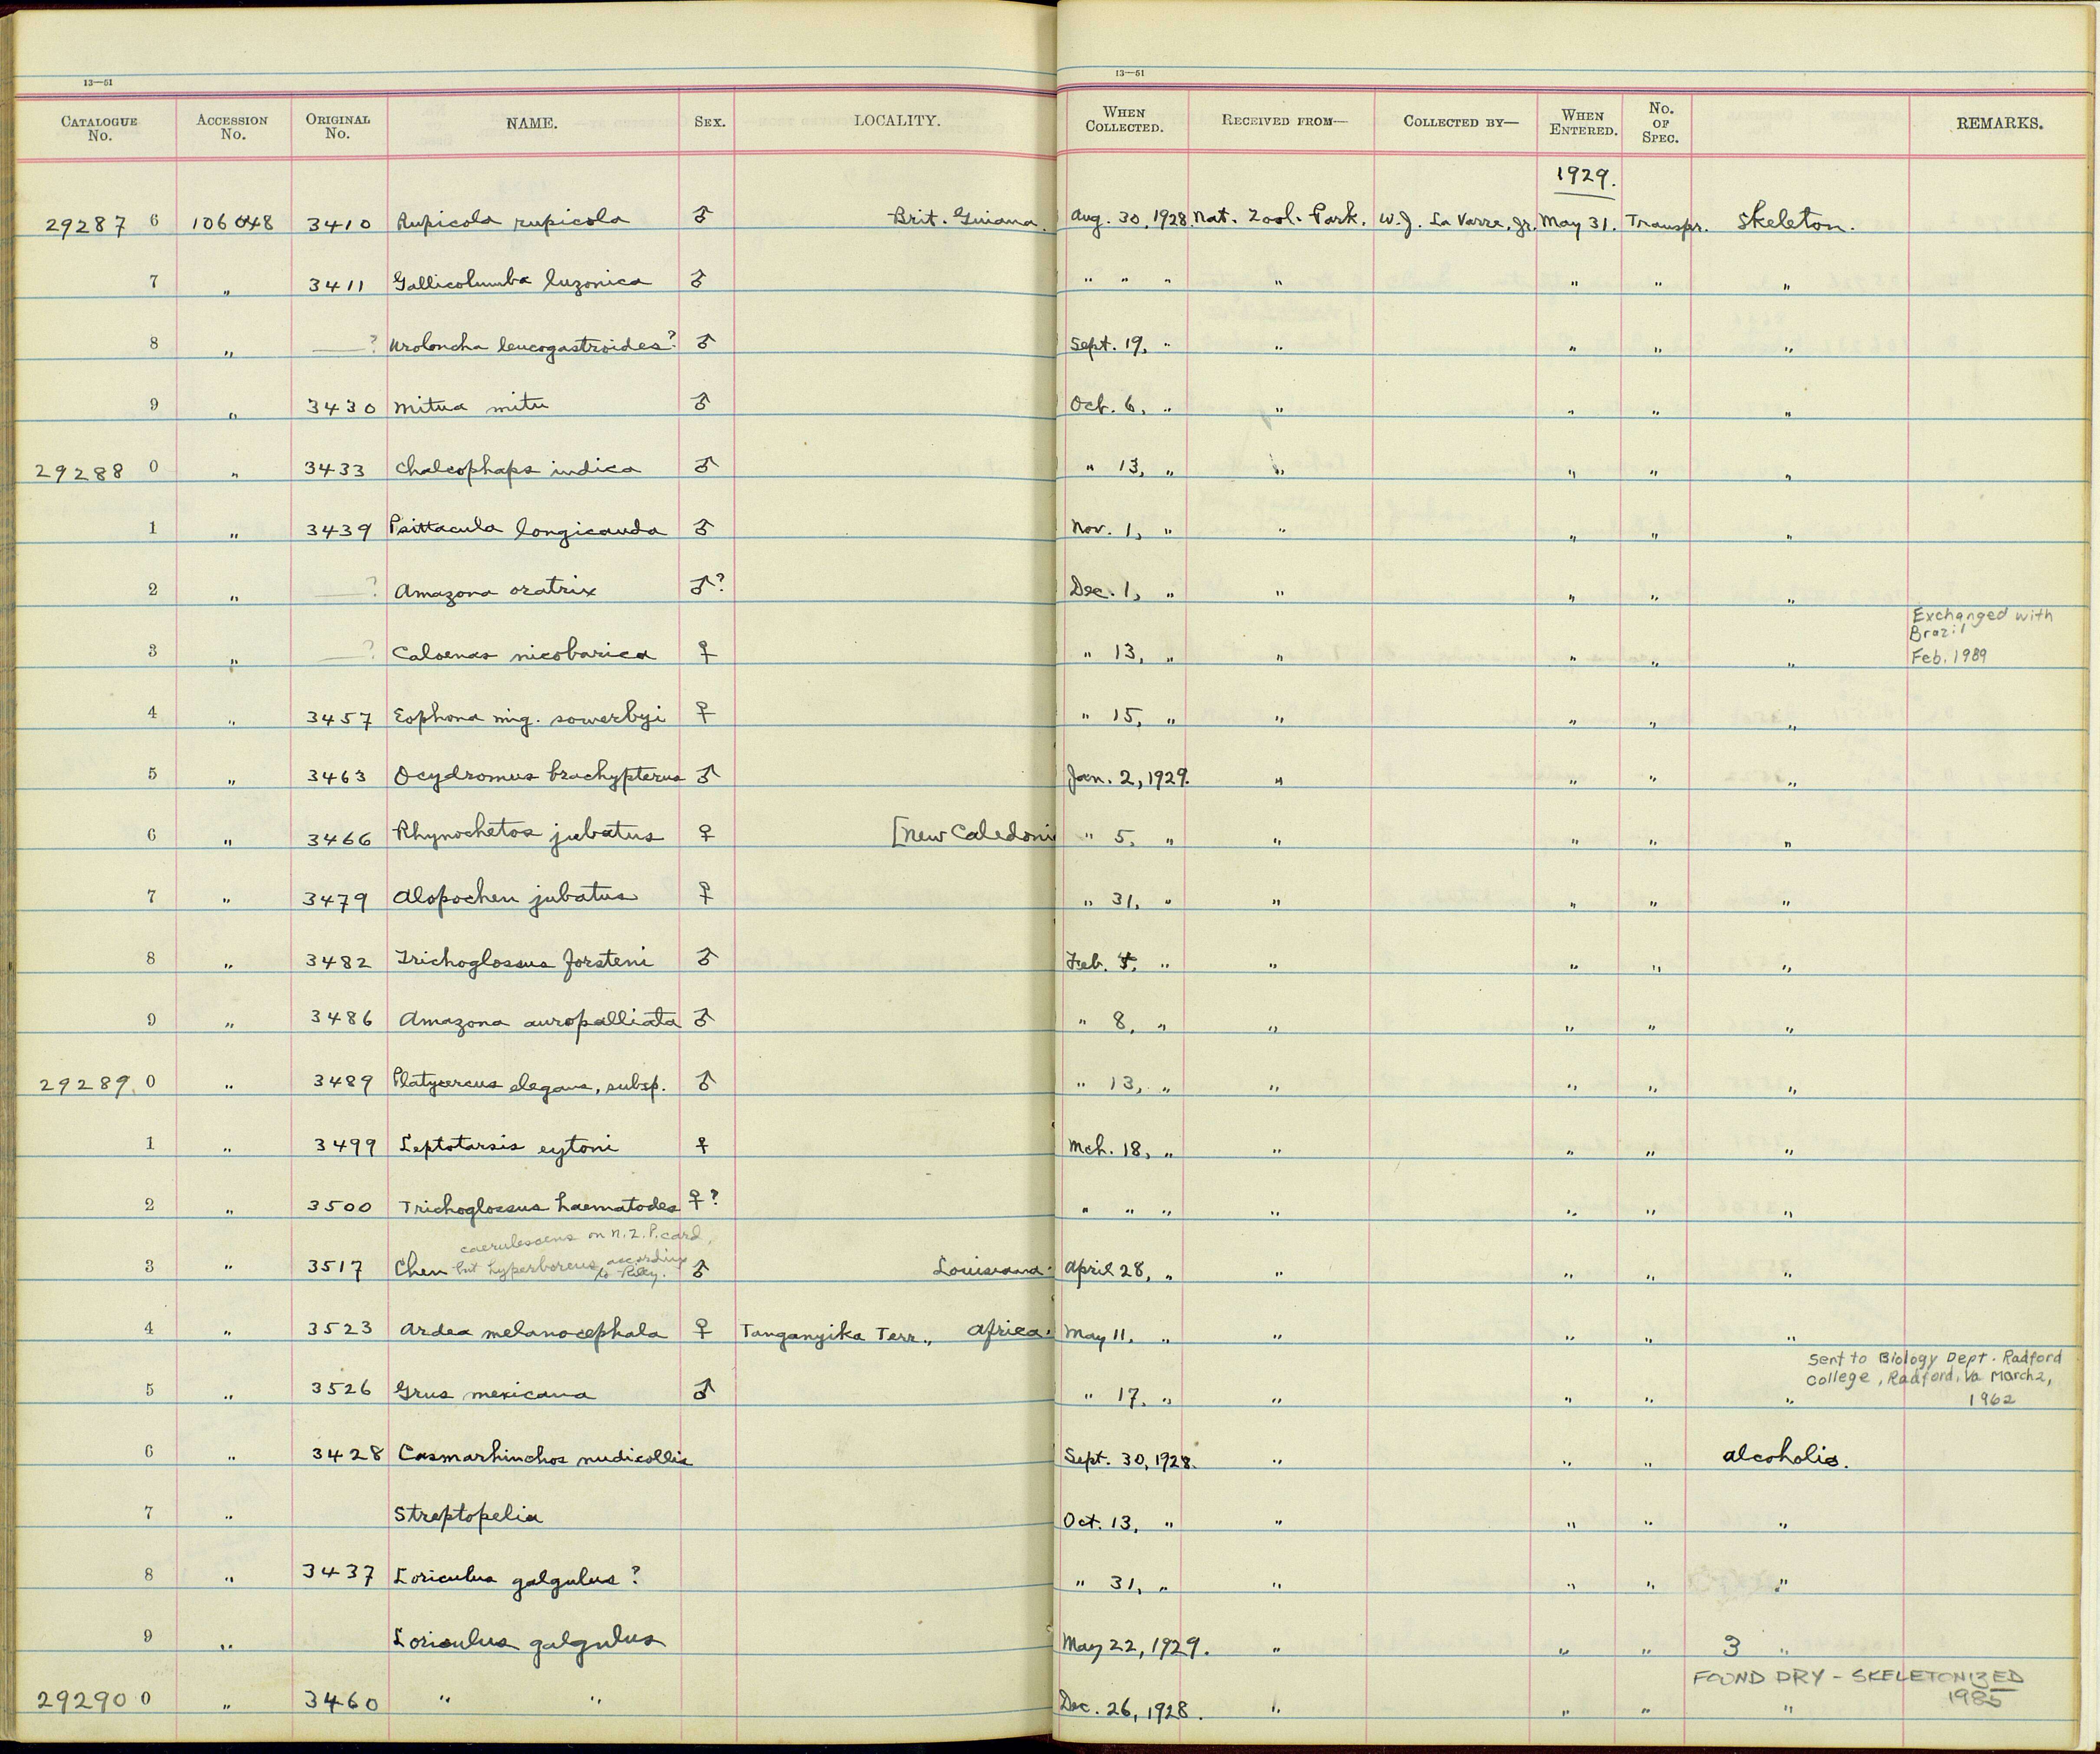 13—51
13—51
CATALOGUE No. ACCESSION No. ORIGINAL No. NAME. SEX. LOCALITY. WHEN COLLECTED. RECEIVED FROM— COLLECTED BY— WHEN ENTERED. No. OF SPEC. REMARKS.
1929.
29287 6 106048 3410 Rupicola rupicola ♂ Brit. Guiana. Aug. 30, 1928. Nat. Zool. Park. W. J. La Varre, Jr. May 31. Transfr. Skeleton.
7 " 3411 Gallicolumba luzonica ♂ " " " " " " "
8 " —? Uroloncha leucogastroides? ♂ Sept. 19, " " " " "
9 " 3430 Mitua mitu ♂ Oct. 6, " " " " "
29288 0 " 3433 Chalcophaps indica ♂ " 13, " " " " "
1 " 3439 Psittacula longicauda ♂ Nov. 1, " " " " "
2 " —? Amazona oratrix ♂? Dec. 1, " " " " "
3 " —? Caloenas nicobarica ♀ " 13, " " " " " Exchanged with
Brazil
Feb. 1989
4 " 3457 Eophona mig. sowerbyi ♀ " 15, " " " " "
5 " 3463 Ocydromus brachypterus ♂ Jan. 2, 1929. " " " "
6 " 3466 Rhynochetos jubatus ♀ [New Caledoni " 5, " " " " "
7 " 3479 Alopochen jubatus ♀ " 31, " " " " "
8 " 3482 Trichoglossus forsteni ♂ Feb. " " " " "
9 " 3486 Amazona auropalliata ♂ " 8, " " " " "
29289 0 " 3489 Platycercus elegans, subsp. ♂ " 13, " " " " "
1 " 3499 Leptotarsis eytoni ♀ Mch. 18, " " " " "
2 " 3500 Trichoglossus haematodes ♀? " " " " " " "
caerulescens on N.Z.P. card,
3 " 3517 Chen but hyperboreus according to Riley. ♂ Louisiana. April 28, " " " " "
4 " 3523 Ardea melanocephala ♀ Tanganyika Terr., Africa. May 11, " " " " "
5 " 3526 Grus mexicana ♂ " 17, " " " " " Sent to Biology Dept. Radford
College, Radford, Va March 2,
1962
6 " 3428 Casmarhinchos nudicollis Sept. 30, 1928. " " " alcoholic.
7 " Streptopelia Oct. 13, " " " " "
8 " 3437 Loriculus galgulus? " 31, " " " " "
9 " Loriculus galgulus May 22, 1929. " " " 3 "
29290 0 " 3460 " " Dec. 26, 1928. " " " " FOUND DRY - SKELETONIZED